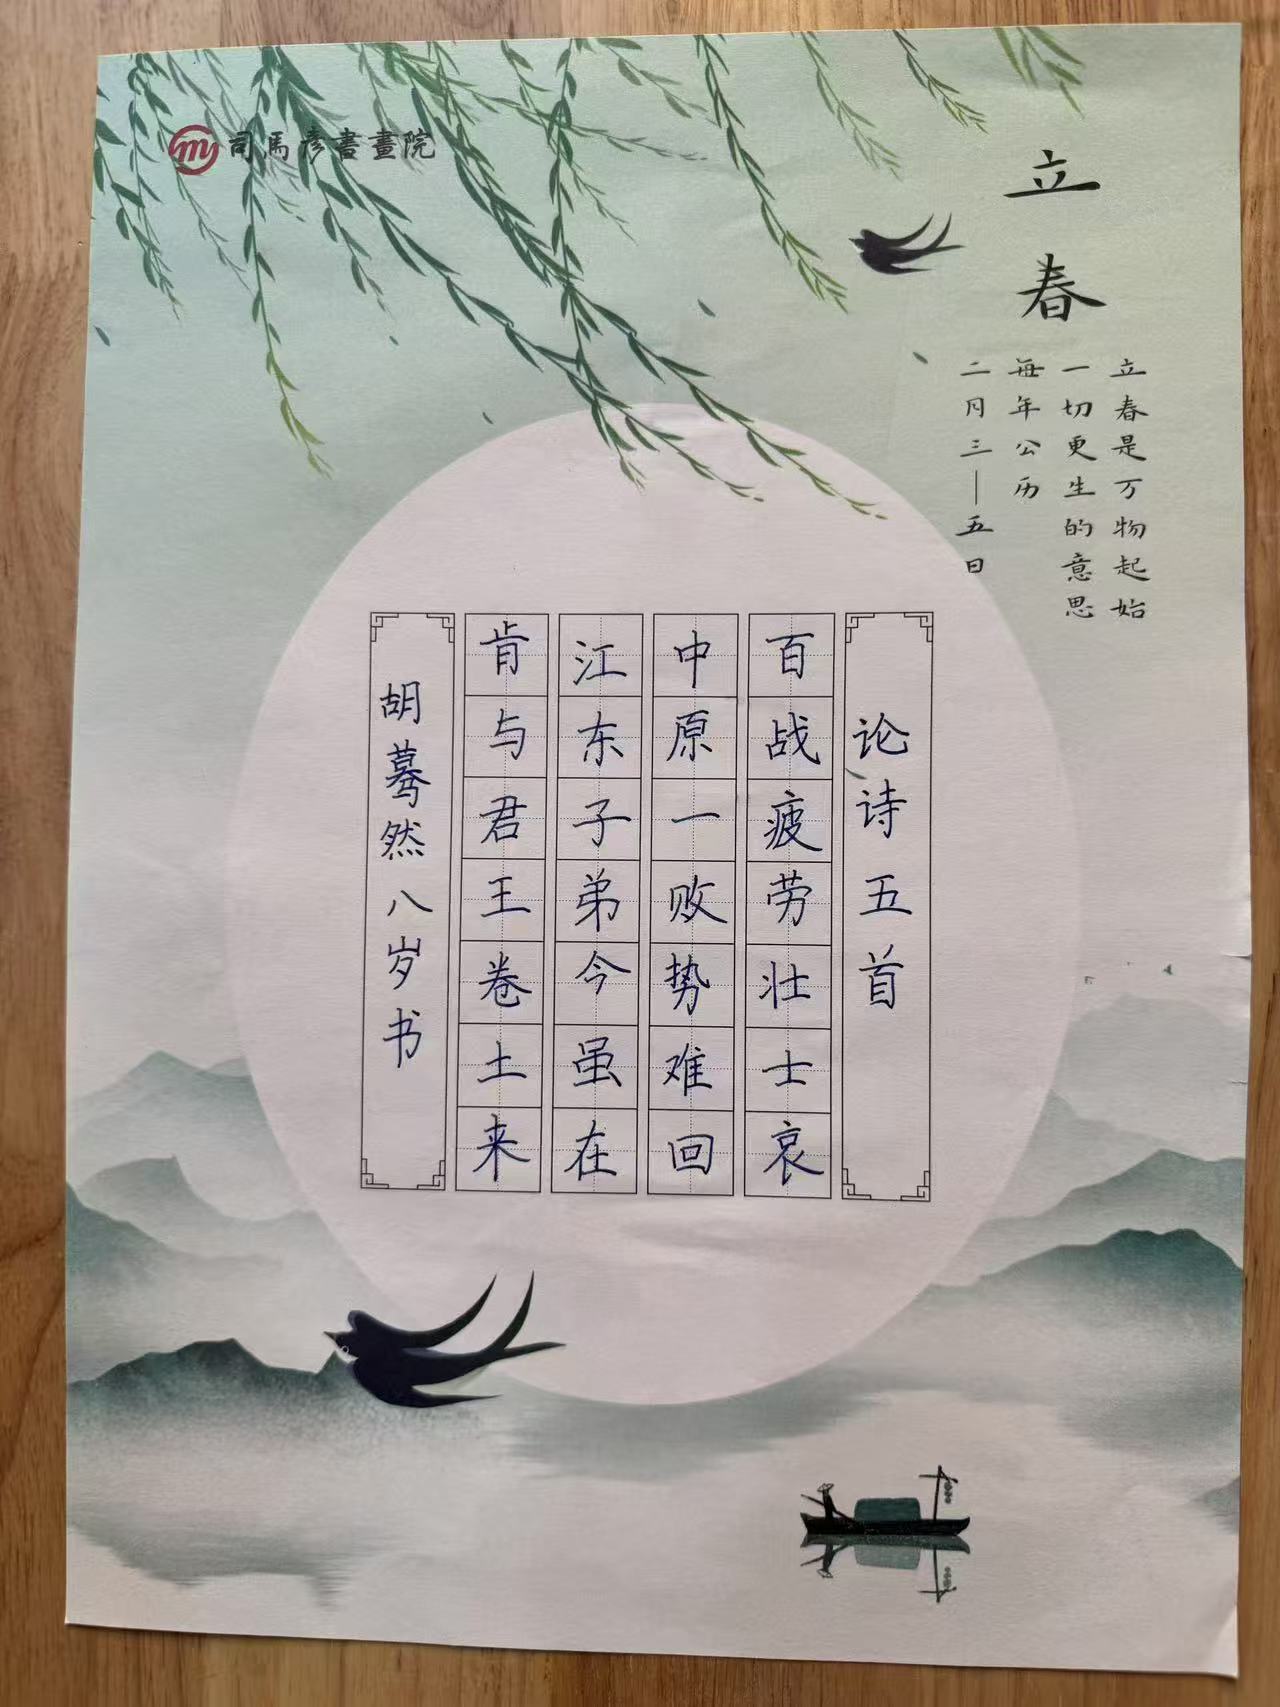 司馬彦書畫院
立春
立春是万物起始
一切更生的意思
每年公历
二月三—五日
论诗五首
百战疲劳壮士哀
中原一败势难回
江东子弟今虽在
肯与君王卷土来
胡蓦然八岁书